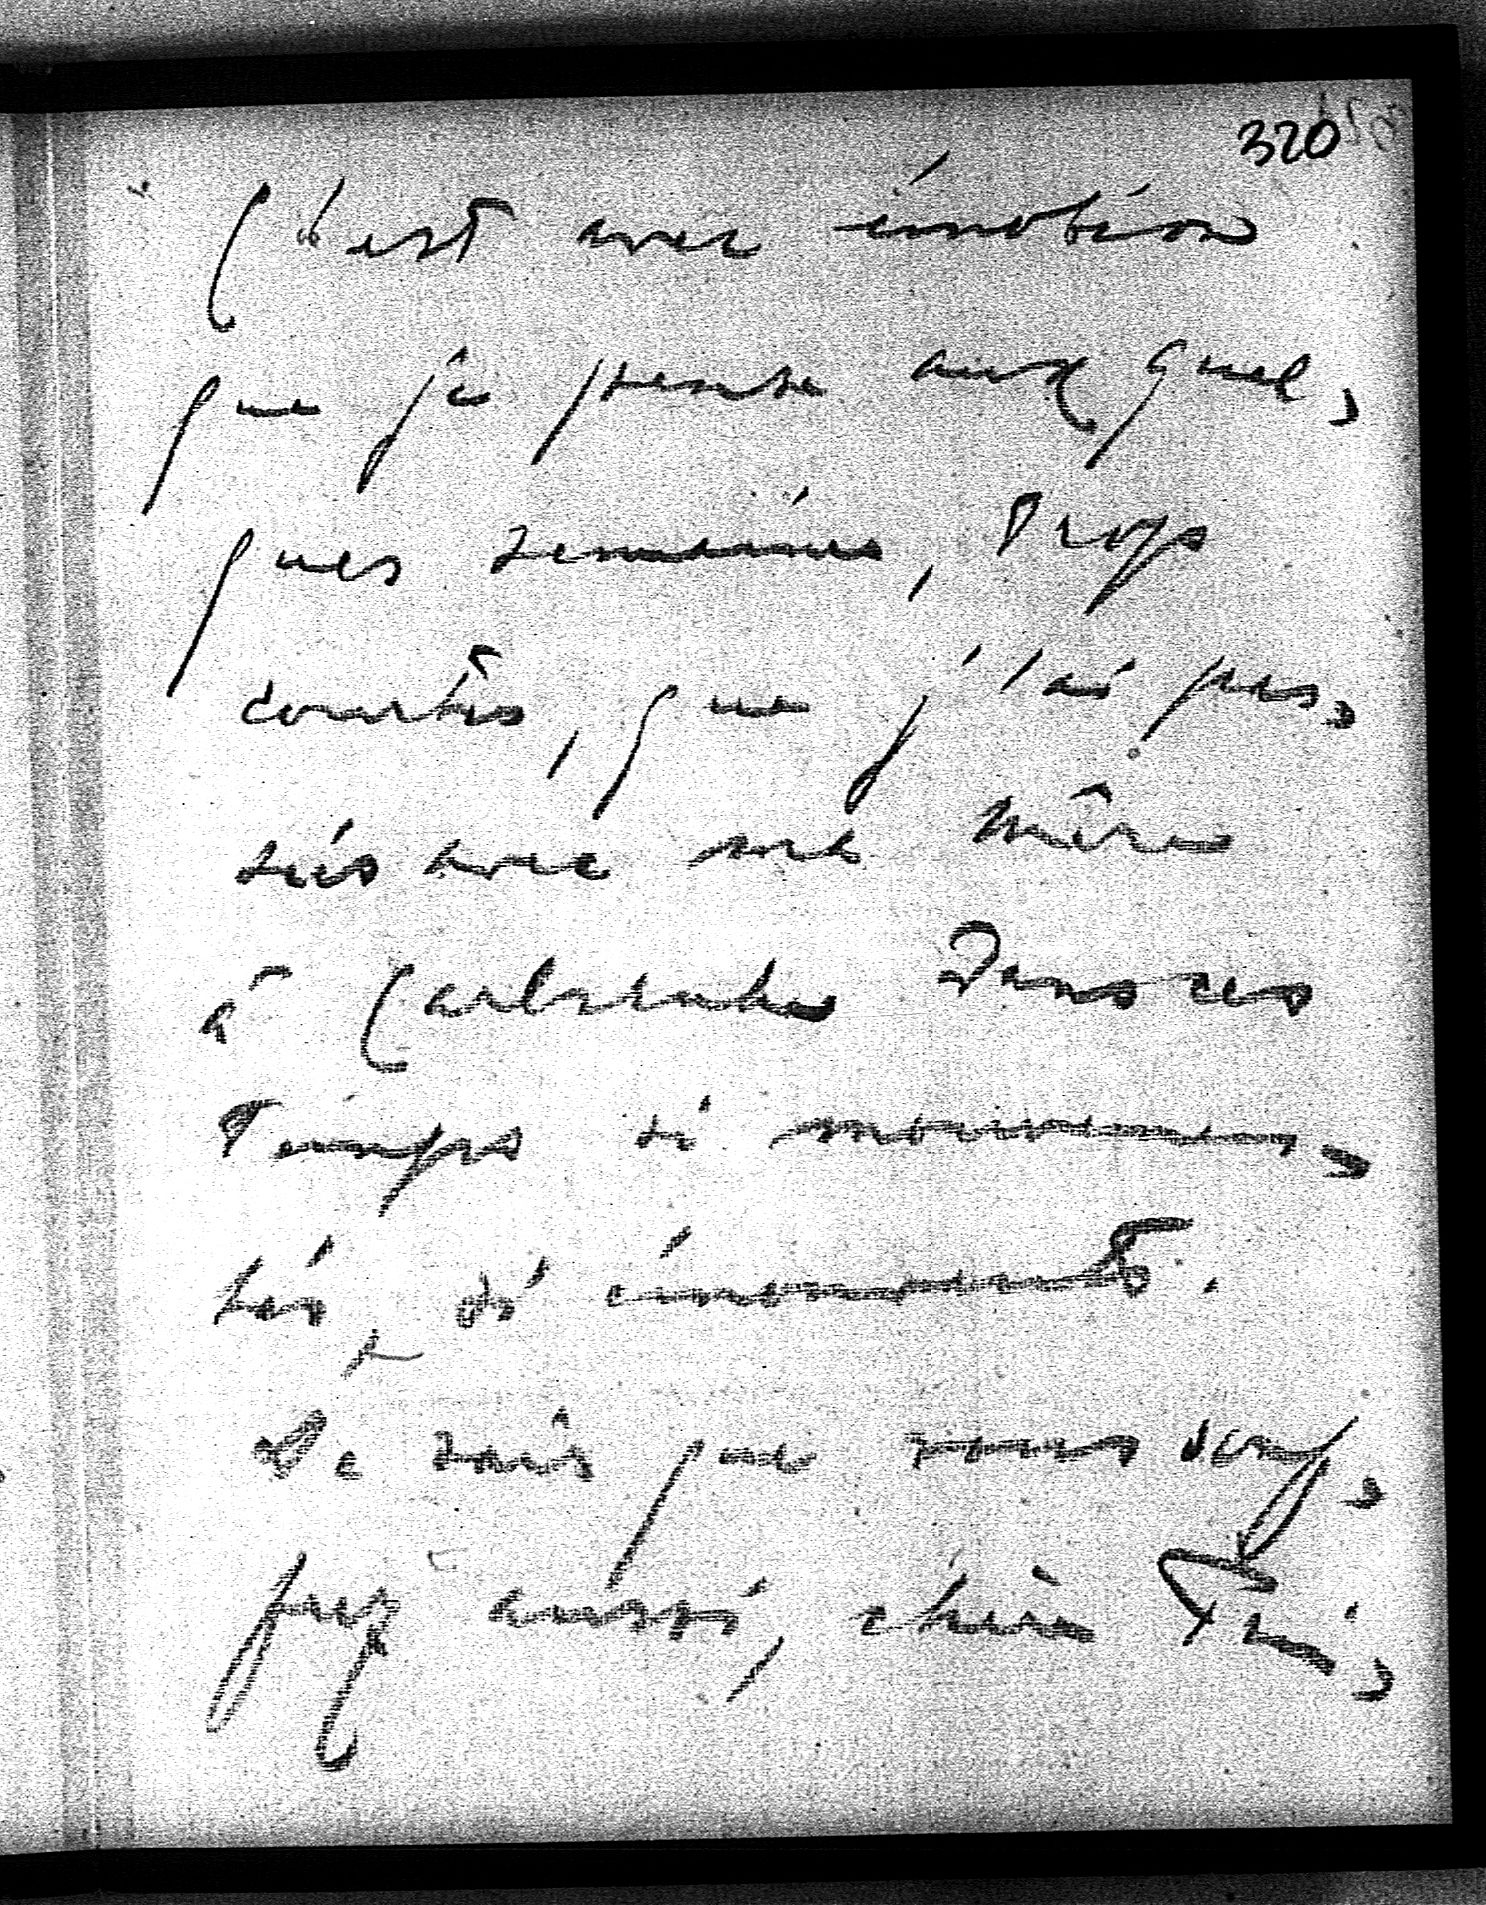 320
C'est avec émotion
que je pense aux quel-
ques semaines, trop
courtes, que j'ai pas-
sées avec ma mère
à Carlsruhe dans ces
temps si mouvemen-
tés, si émouvants.
Je sais que vous son-
gez aussi, chère